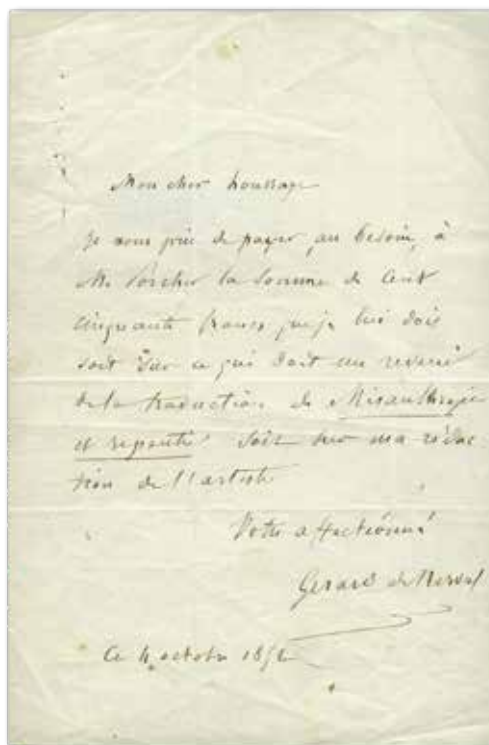 Mon cher houssaye
Je vous prie de payer, au besoin, à
Mr Porcher la somme de Cent
cinquante francs que je lui dois
soit sur ce qui doit me revenir
de la traduction de Misanthropie
et repentir soit sur ma rédac
tion de l'artiste
Votre affectionné
Gerard de Nerval
Ce 4 octobre